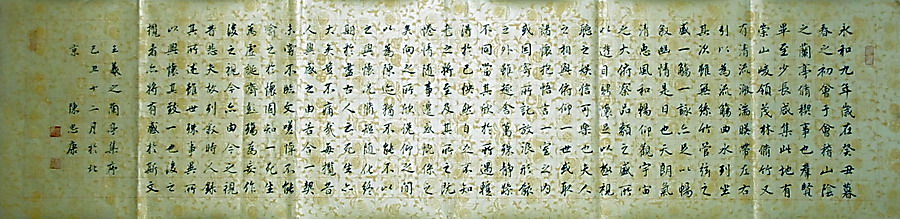 永和九年歲在癸丑暮
春之初會于會稽山陰
之蘭亭脩稧事也羣賢
畢至少長咸集此地有
崇山峻領茂林脩竹又
有清流激湍暎帶左右
引以為流觴曲水列坐
其次雖無絲竹管弦之
盛一觴一詠亦足以暢
敘幽情是日也天朗氣
清惠風和暢仰觀宇宙
之大俯察品類之盛所
以遊目騁懷足以極視
聽之娛信可樂也夫人
之相與俯仰一世或取
諸懷抱悟言一室之內
或因寄所託放浪形骸
之外雖趣舍萬殊靜躁
不同當其欣於所遇暫
得於己快然自足不知
老之將至及其所之既
惓情隨事遷感慨係之
矣向之所欣俛仰之間
以為陳迹猶不能不以
之興懷況脩短隨化終
期於盡古人云死生亦
大矣豈不痛哉每攬昔
人興感之由若合一契
未嘗不臨文嗟悼不能
喻之於懷固知一死生
為虛誕齊彭殤為妄作
後之視今亦由今之視
昔悲夫故列敘時人錄
其所述雖世殊事異所
以興懷其致一也後之
攬者亦將有感於斯文
王羲之蘭亭集序
己丑十二月於北
京 陳忠康